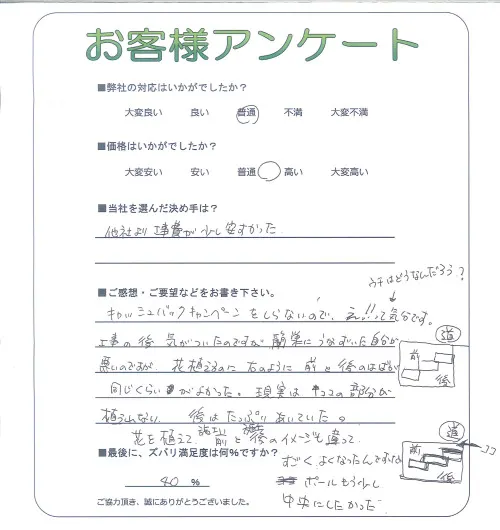 お客様アンケート
■弊社の対応はいかがでしたか？
大変良い 良い 普通 不満 大変不満
■価格はいかがでしたか？
大変安い 安い 普通 高い 大変高い
■当社を選んだ決め手は？
他社より工事費が少し安すかった
ウチはどうなんだろう？
■ご感想・ご要望などをお書き下さい。
キャッシュバックキャンペーンをしらないので、え!!って気分です。
工事の後 気がついたのですが 簡単にうなずいた自分が
悪いのですが 花植えるのに右のように前と後のはばが
同じくらいがよかった。現実は ココの部分が
植えれない 後はたっぷりあいていた。
花を植えて 前と後のイメージも違って
道
前
後
■最後に、ズバリ満足度は何%ですか？
すごくよくなったんですが
40 %
ポールもう少し
中央にしたかった
ご協力頂き、誠にありがとうございました。
道
前
後
ココ